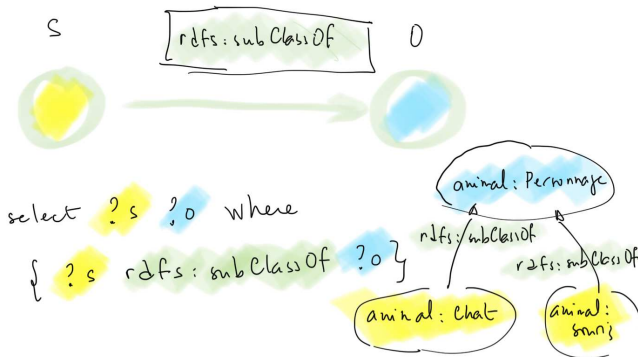 S rdfs:subClassOf O
select ?s ?o where
{ ?s rdfs:subClassOf ?o }
animal:Personnage
rdfs:subClassOf
rdfs:subClassOf
animal:Chat
animal:
souris